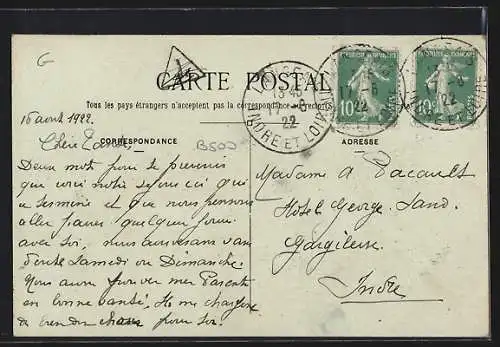 G
CARTE POSTALE
Tous les pays étrangers n'acceptent pas la correspondance au recto
CORRESPONDANCE
ADRESSE
B500
13 45
17 -8
22
INDRE ET LOIRE
10
10
16 août 1922.
Chère
Deux mots pour te prévenir
que voici notre séjour ici qui
se termine et que nous pensons
aller passer quelques jours
avec toi, nous arriverons sans
doute Samedi ou Dimanche.
Nous avons trouvé mes Parents
en bonne santé. Ils me chargent
de pour toi.
Madame A Pacault
Hôtel George Sand
Gargilesse
Indre